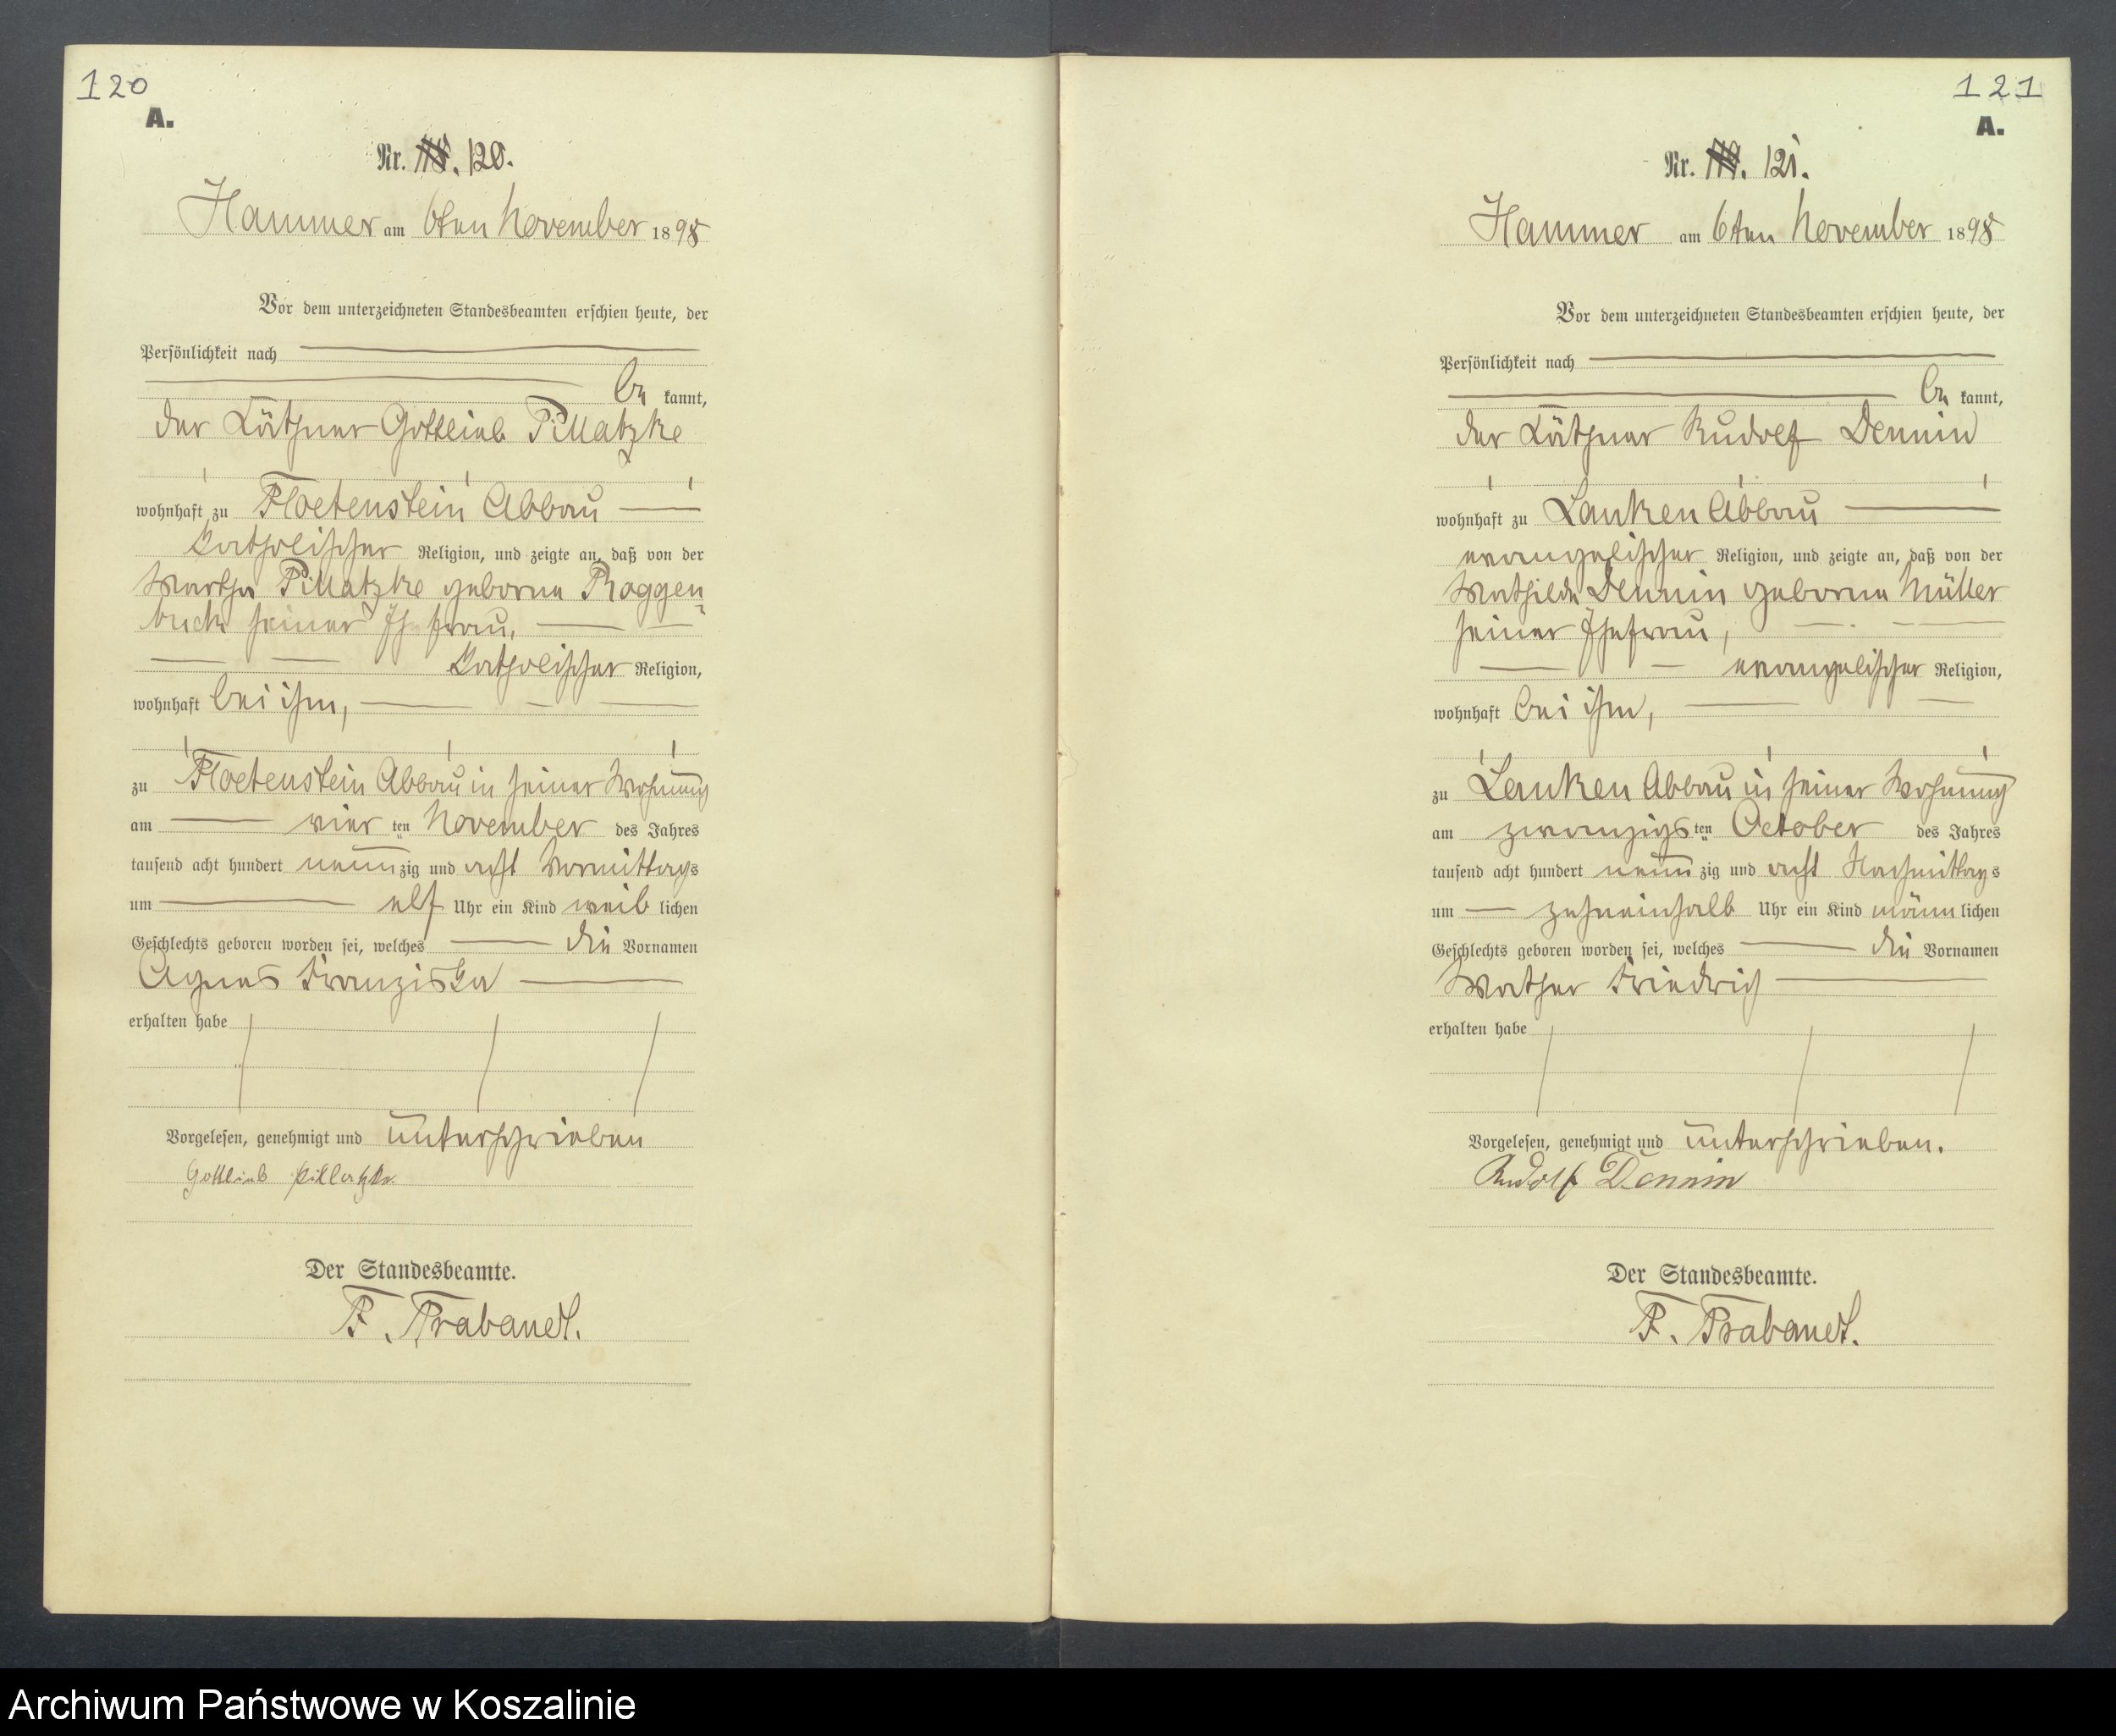 120
A.
Nr. 118. 120.
Hammer am 6ten November 1898
Vor dem unterzeichneten Standesbeamten erschien heute, der
Persönlichkeit nach
be kannt,
der Käthner Gottlieb Pillatzke
wohnhaft zu Floetenstein Abbau
katholischer Religion, und zeigte an, daß von der
Martha Pillatzke geborne Roggen
buck seiner Ehefrau,
katholischer Religion,
wohnhaft bei ihm,
zu Floetenstein Abbau in seiner Wohnung
am vier ten November des Jahres
tausend acht hundert neun zig und acht Vormittags
um elf Uhr ein Kind weib lichen
Geschlechts geboren worden sei, welches die Vornamen
Agnes Franziska
erhalten habe
Vorgelesen, genehmigt und unterschrieben
Gottlieb Pillatzke.
Der Standesbeamte.
F. Brabandt.
121
A.
Nr. 119. 121.
Hammer am 6ten November 1898
Vor dem unterzeichneten Standesbeamten erschien heute, der
Persönlichkeit nach
be kannt,
der Käthner Rudolf Dennin
wohnhaft zu Lanken Abbau
evangelischer Religion, und zeigte an, daß von der
Mathilde Dennin geborne Müller
seiner Ehefrau,
evangelischer Religion,
wohnhaft bei ihm,
zu Lanken Abbau in seiner Wohnung
am zwanzigs ten October des Jahres
tausend acht hundert neun zig und acht Nachmittags
um zehneinhalb Uhr ein Kind männ lichen
Geschlechts geboren worden sei, welches die Vornamen
Friedrich
erhalten habe
Vorgelesen, genehmigt und unterschrieben.
Rudolf Dennin
Der Standesbeamte.
F. Brabandt.
Archiwum Państwowe w Koszalinie